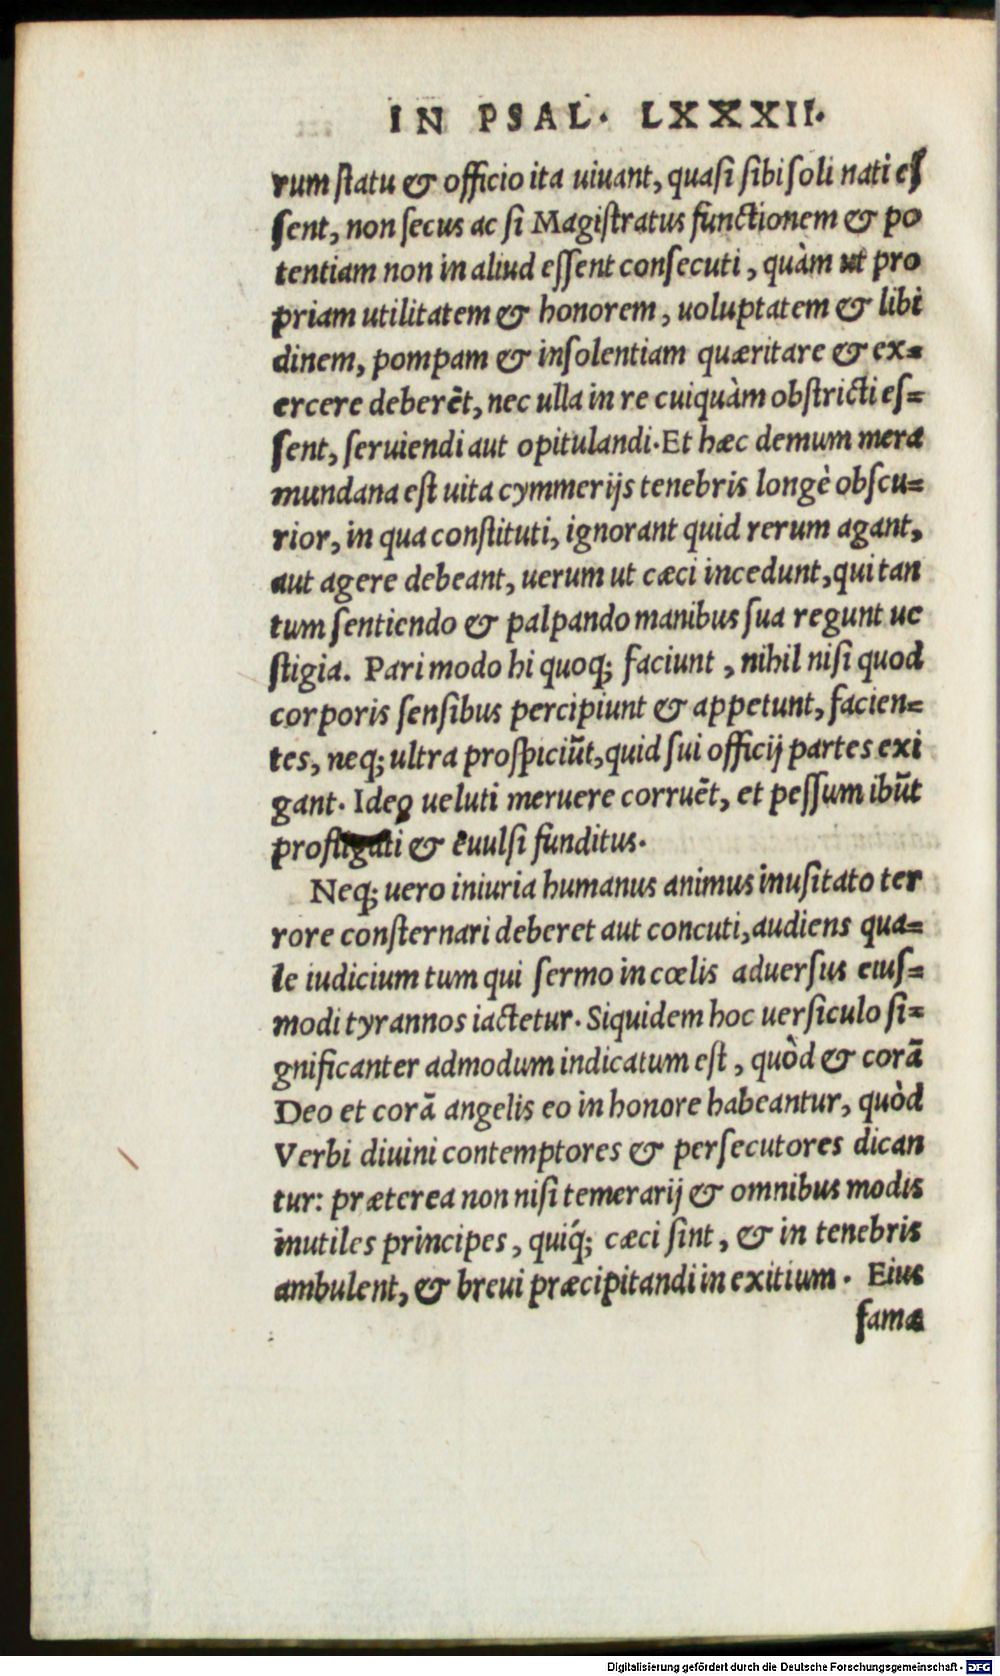 IN PSAL. LXXXII.
rum ſtatu & officio ita uiuant, quaſi ſibi ſoli nati eſ
ſent, non ſecus ac ſi Magiſtratus functionem & po
tentiam non in aliud eſſent conſecuti, quàm ut pro
priam utilitatem & honorem, uoluptatem & libi
dinem, pompam & inſolentiam quæritare & ex=
ercere deberẽt, nec ulla in re cuiquàm obſtricti eſ=
ſent, ſeruiendi aut opitulandi. Et hæc demum mera
mundana eſt uita cymmerijs tenebris longè obſcu=
rior, in qua conſtituti, ignorant quid rerum agant,
aut agere debeant, uerum ut cæci incedunt, qui tan
tum ſentiendo & palpando manibus ſua regunt ue
ſtigia. Pari modo hi quoq; faciunt, nihil niſi quod
corporis ſenſibus percipiunt & appetunt, facien=
tes, neq; ultra proſpiciũt, quid ſui officij partes exi
gant. Ideq ueluti meruere corruẽt, et peſſum ibũt
profligati & euulſi funditus.
Neq; uero iniuria humanus animus inuſitato ter
rore conſternari deberet aut concuti, audiens qua=
le iudicium tum qui ſermo in cœlis aduerſus eiuſ=
modi tyrannos iactetur. Siquidem hoc uerſiculo ſi=
gnificanter admodum indicatum eſt, quòd & corã
Deo et corã angelis eo in honore habeantur, quòd
Verbi diuini contemptores & perſecutores dican
tur: præterea non niſi temerarij & omnibus modis
inutiles principes, quiq́; cæci ſint, & in tenebris
ambulent, & breui præcipitandi in exitium. Eius
famæ
Digitalisierung gefördert durch die Deutsche Forschungsgemeinschaft - DFG